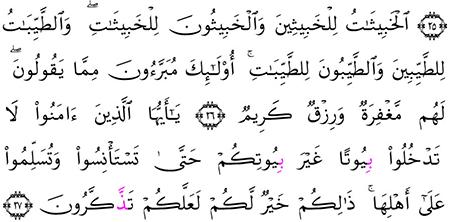 ﴿٢٥﴾ ٱلْخَبِيثَٰتُ لِلْخَبِيثِينَ وَٱلْخَبِيثُونَ لِلْخَبِيثَٰتِ ۖ وَٱلطَّيِّبَٰتُ
لِلطَّيِّبِينَ وَٱلطَّيِّبُونَ لِلطَّيِّبَٰتِ ۚ أُو۟لَٰٓئِكَ مُبَرَّءُونَ مِمَّا يَقُولُونَ ۖ
لَهُم مَّغْفِرَةٌ وَرِزْقٌ كَرِيمٌ ﴿٢٦﴾ يَٰٓأَيُّهَا ٱلَّذِينَ ءَامَنُوا۟ لَا
تَدْخُلُوا۟ بِيُوتًا غَيْرَ بِيُوتِكُمْ حَتَّىٰ تَسْتَأْنِسُوا۟ وَتُسَلِّمُوا۟
عَلَىٰٓ أَهْلِهَا ۚ ذَٰلِكُمْ خَيْرٌ لَّكُمْ لَعَلَّكُمْ تَذَّكَّرُونَ ﴿٢٧﴾